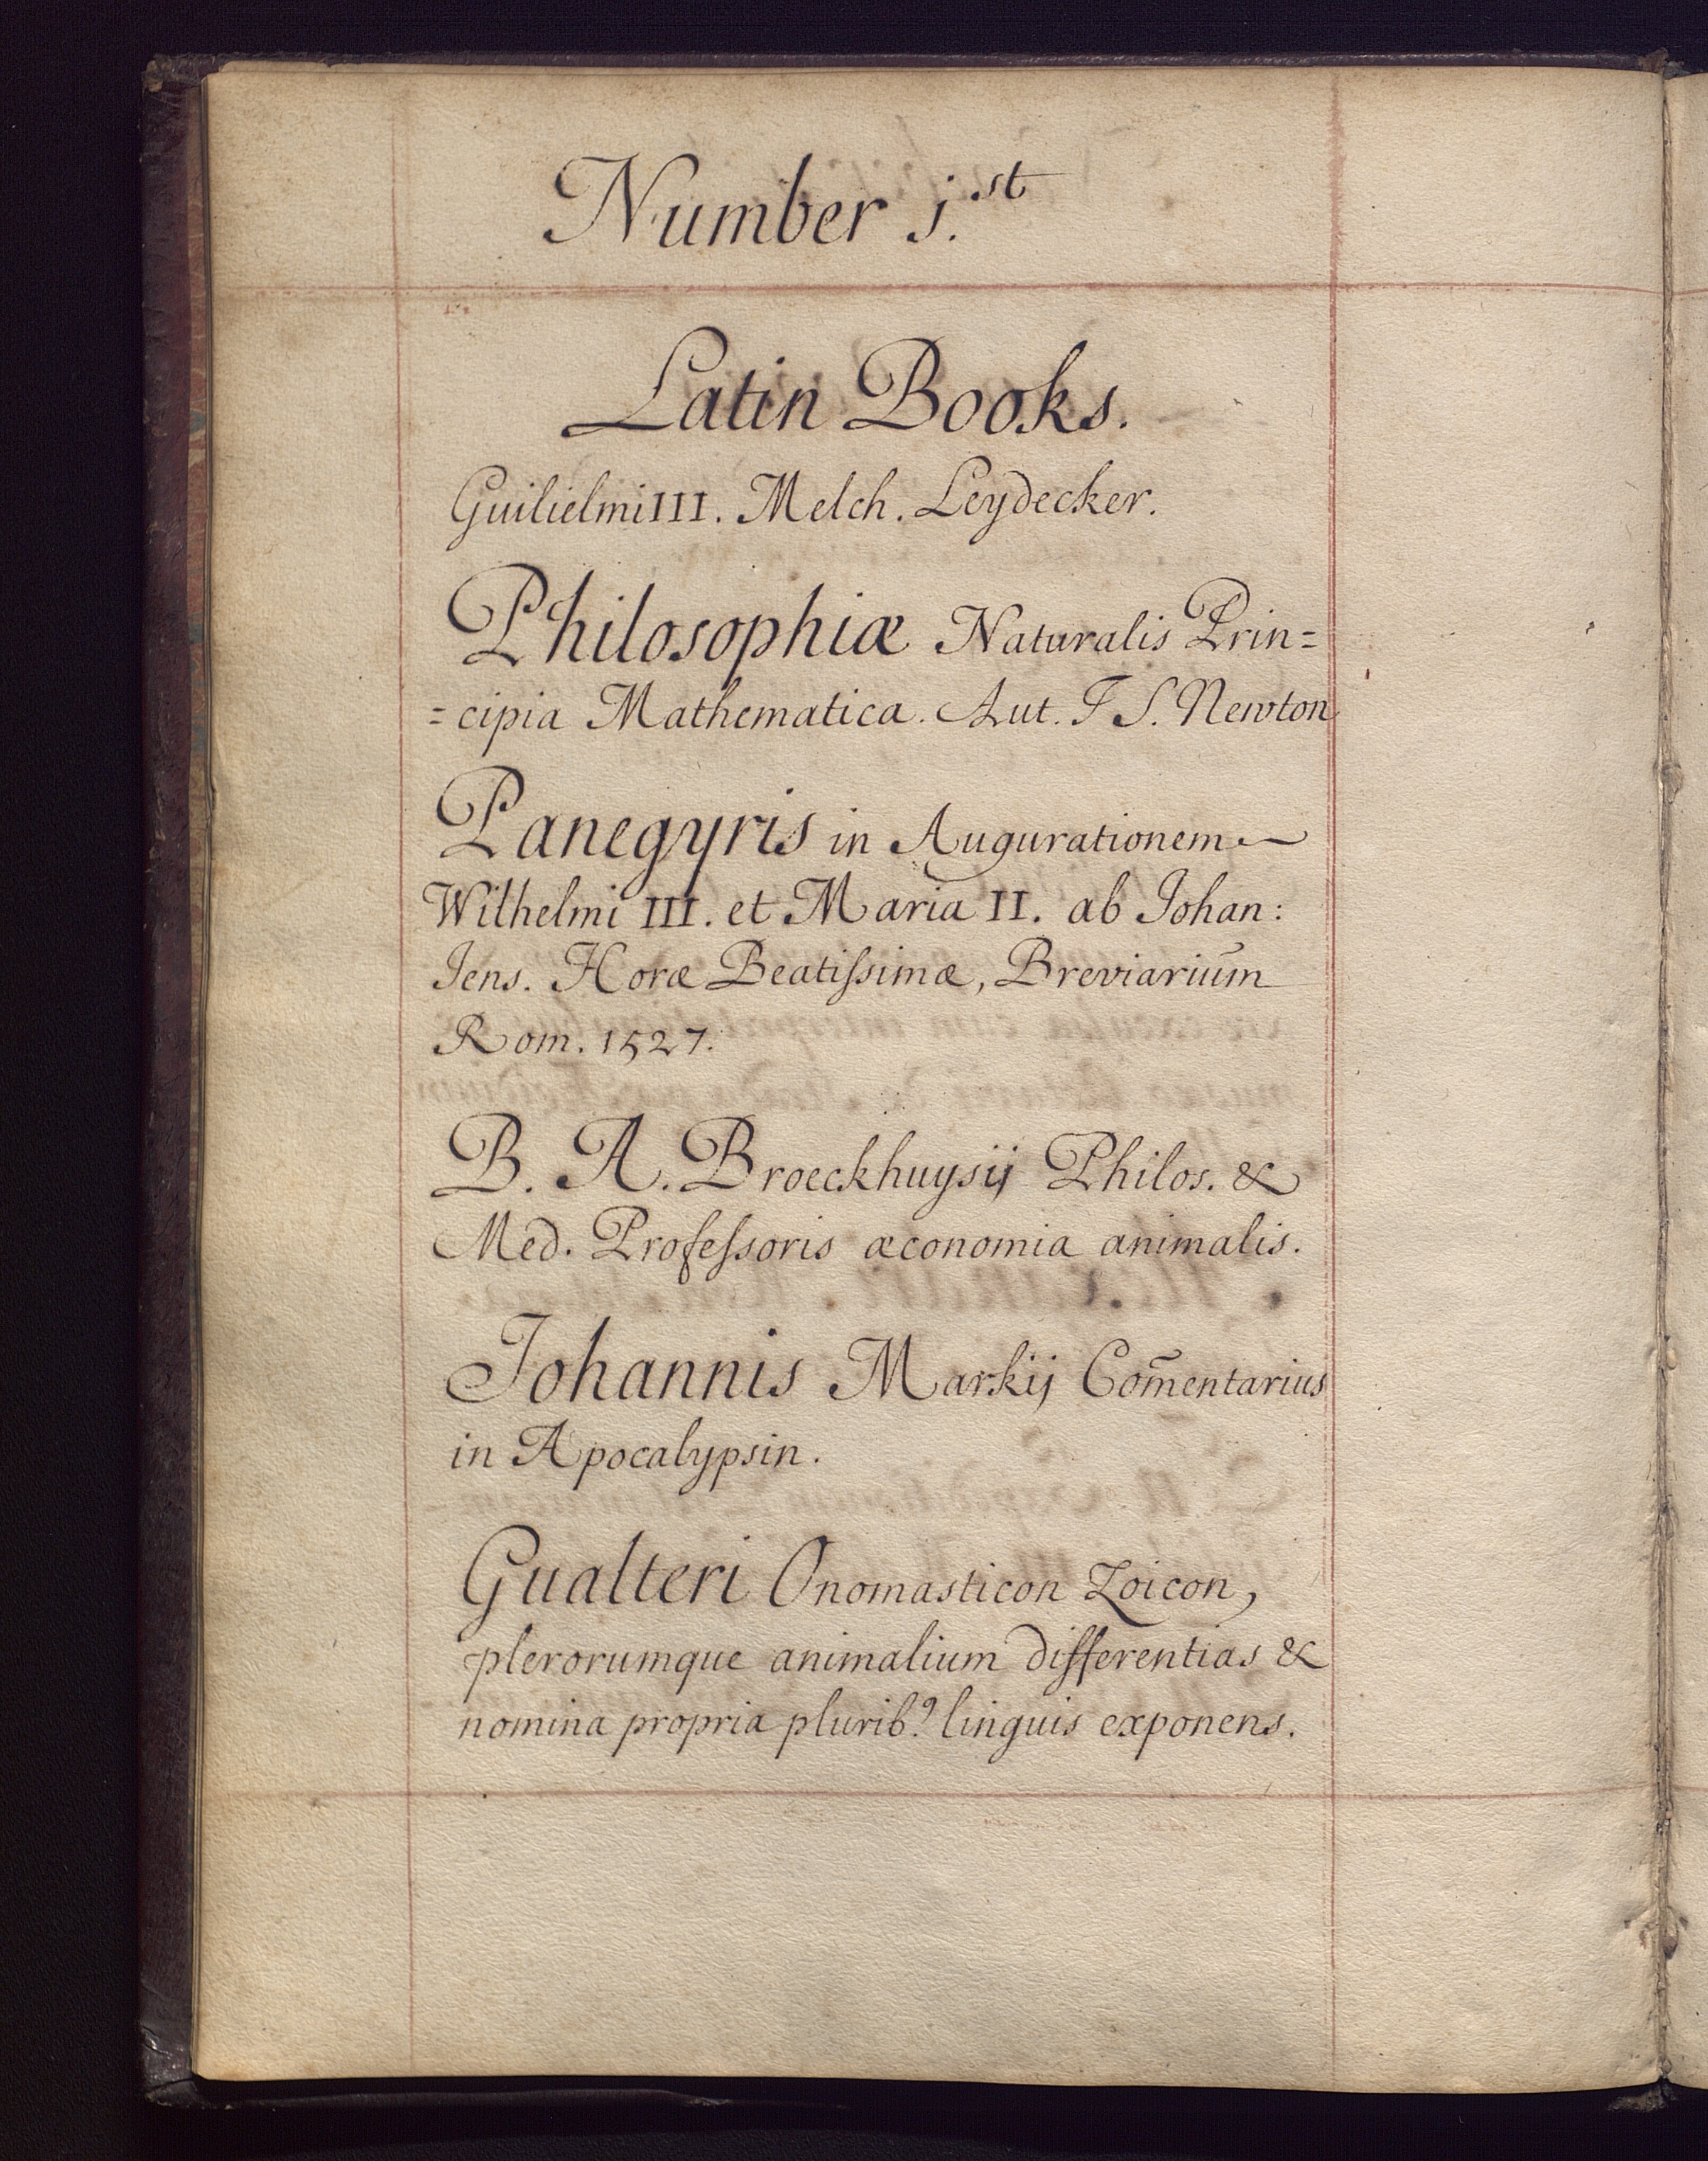 Number j.st
Latin Books.
Guilielmi III. Melch. Leydecker.
Philosophiæ Naturalis Prin=
=cipia Mathematica. Aut. I S. Newton
Panegyris in Augurationem
Wilhelmi III. et Maria II. ab Johan:
Jens. Horæ Beatissimæ, Breviariūm
Rom. 1527.
B. A. Broeckhuysij Philos. &
Med. Professoris æconomia animalis.
Johannis Markij Com̄entarius
in Apocalypsin.
Gualteri Onomasticon Zoicon,
plerorumque animalium differentias &
nomina propria plurib9. linguis exponens.